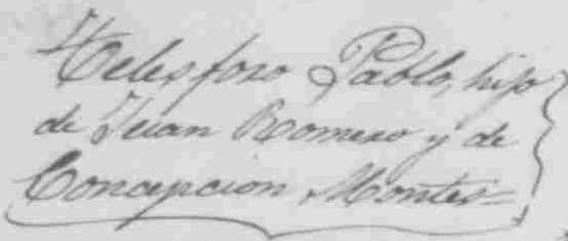 Telesforo Pablo, hijo
de Juan Romero y de
Concepcion Montes=